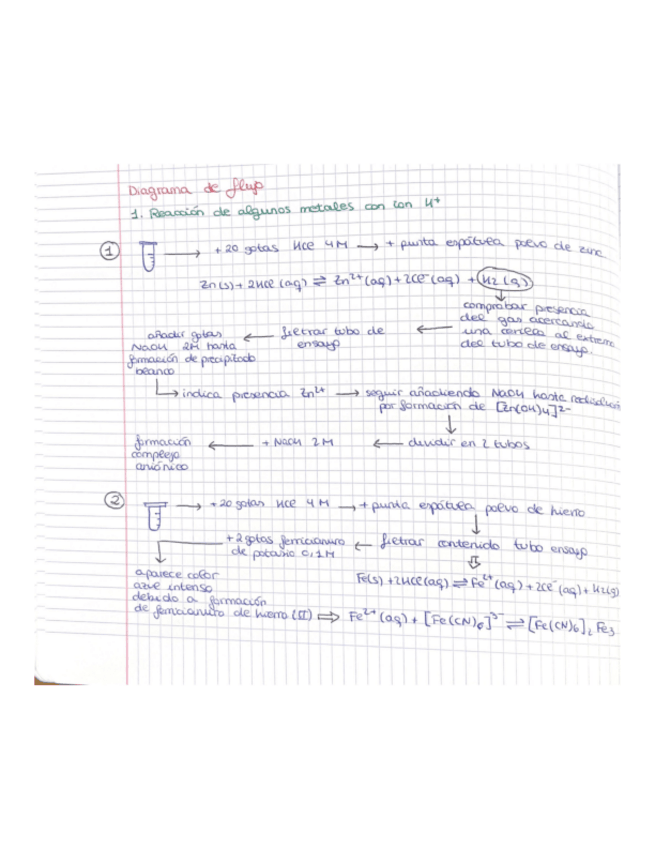 Diagrama de flujo
1. Reacción de algunos metales con ion H+
1 → + 20 gotas HCl 4M → + punta espátula polvo de zinc
Zn(s) + 2HCl (aq) ⇌ Zn²⁺(aq) + 2Cl⁻(aq) + H₂(g)
comprobar presencia
del gas acercando
una cerilla al extremo
del tubo de ensayo.
← filtrar tubo de
ensayo
← añadir gotas
NaOH 2M hasta
formación de precipitado
blanco
→ indica presencia Zn²⁺ → seguir añadiendo NaOH hasta
por formación de [Zn(OH)₄]²⁻
dividir en 2 tubos
← + NaOH 2M
← formación
complejo
aniónico
2 → +20 gotas HCl 4M → + punta espátula polvo de hierro
← filtrar contenido tubo ensayo
Fe(s) + 2HCl(aq) ⇌ Fe²⁺(aq) + 2Cl⁻(aq) + H₂(g)
+ 2 gotas ferricianuro
de potasio 0,1M
aparece color
azul intenso
debido a formación
de ferricianuro de hierro (II) ⇒ Fe²⁺(aq) + [Fe(CN)₆]³⁻ ⇌ [Fe(CN)₆]₂Fe₃